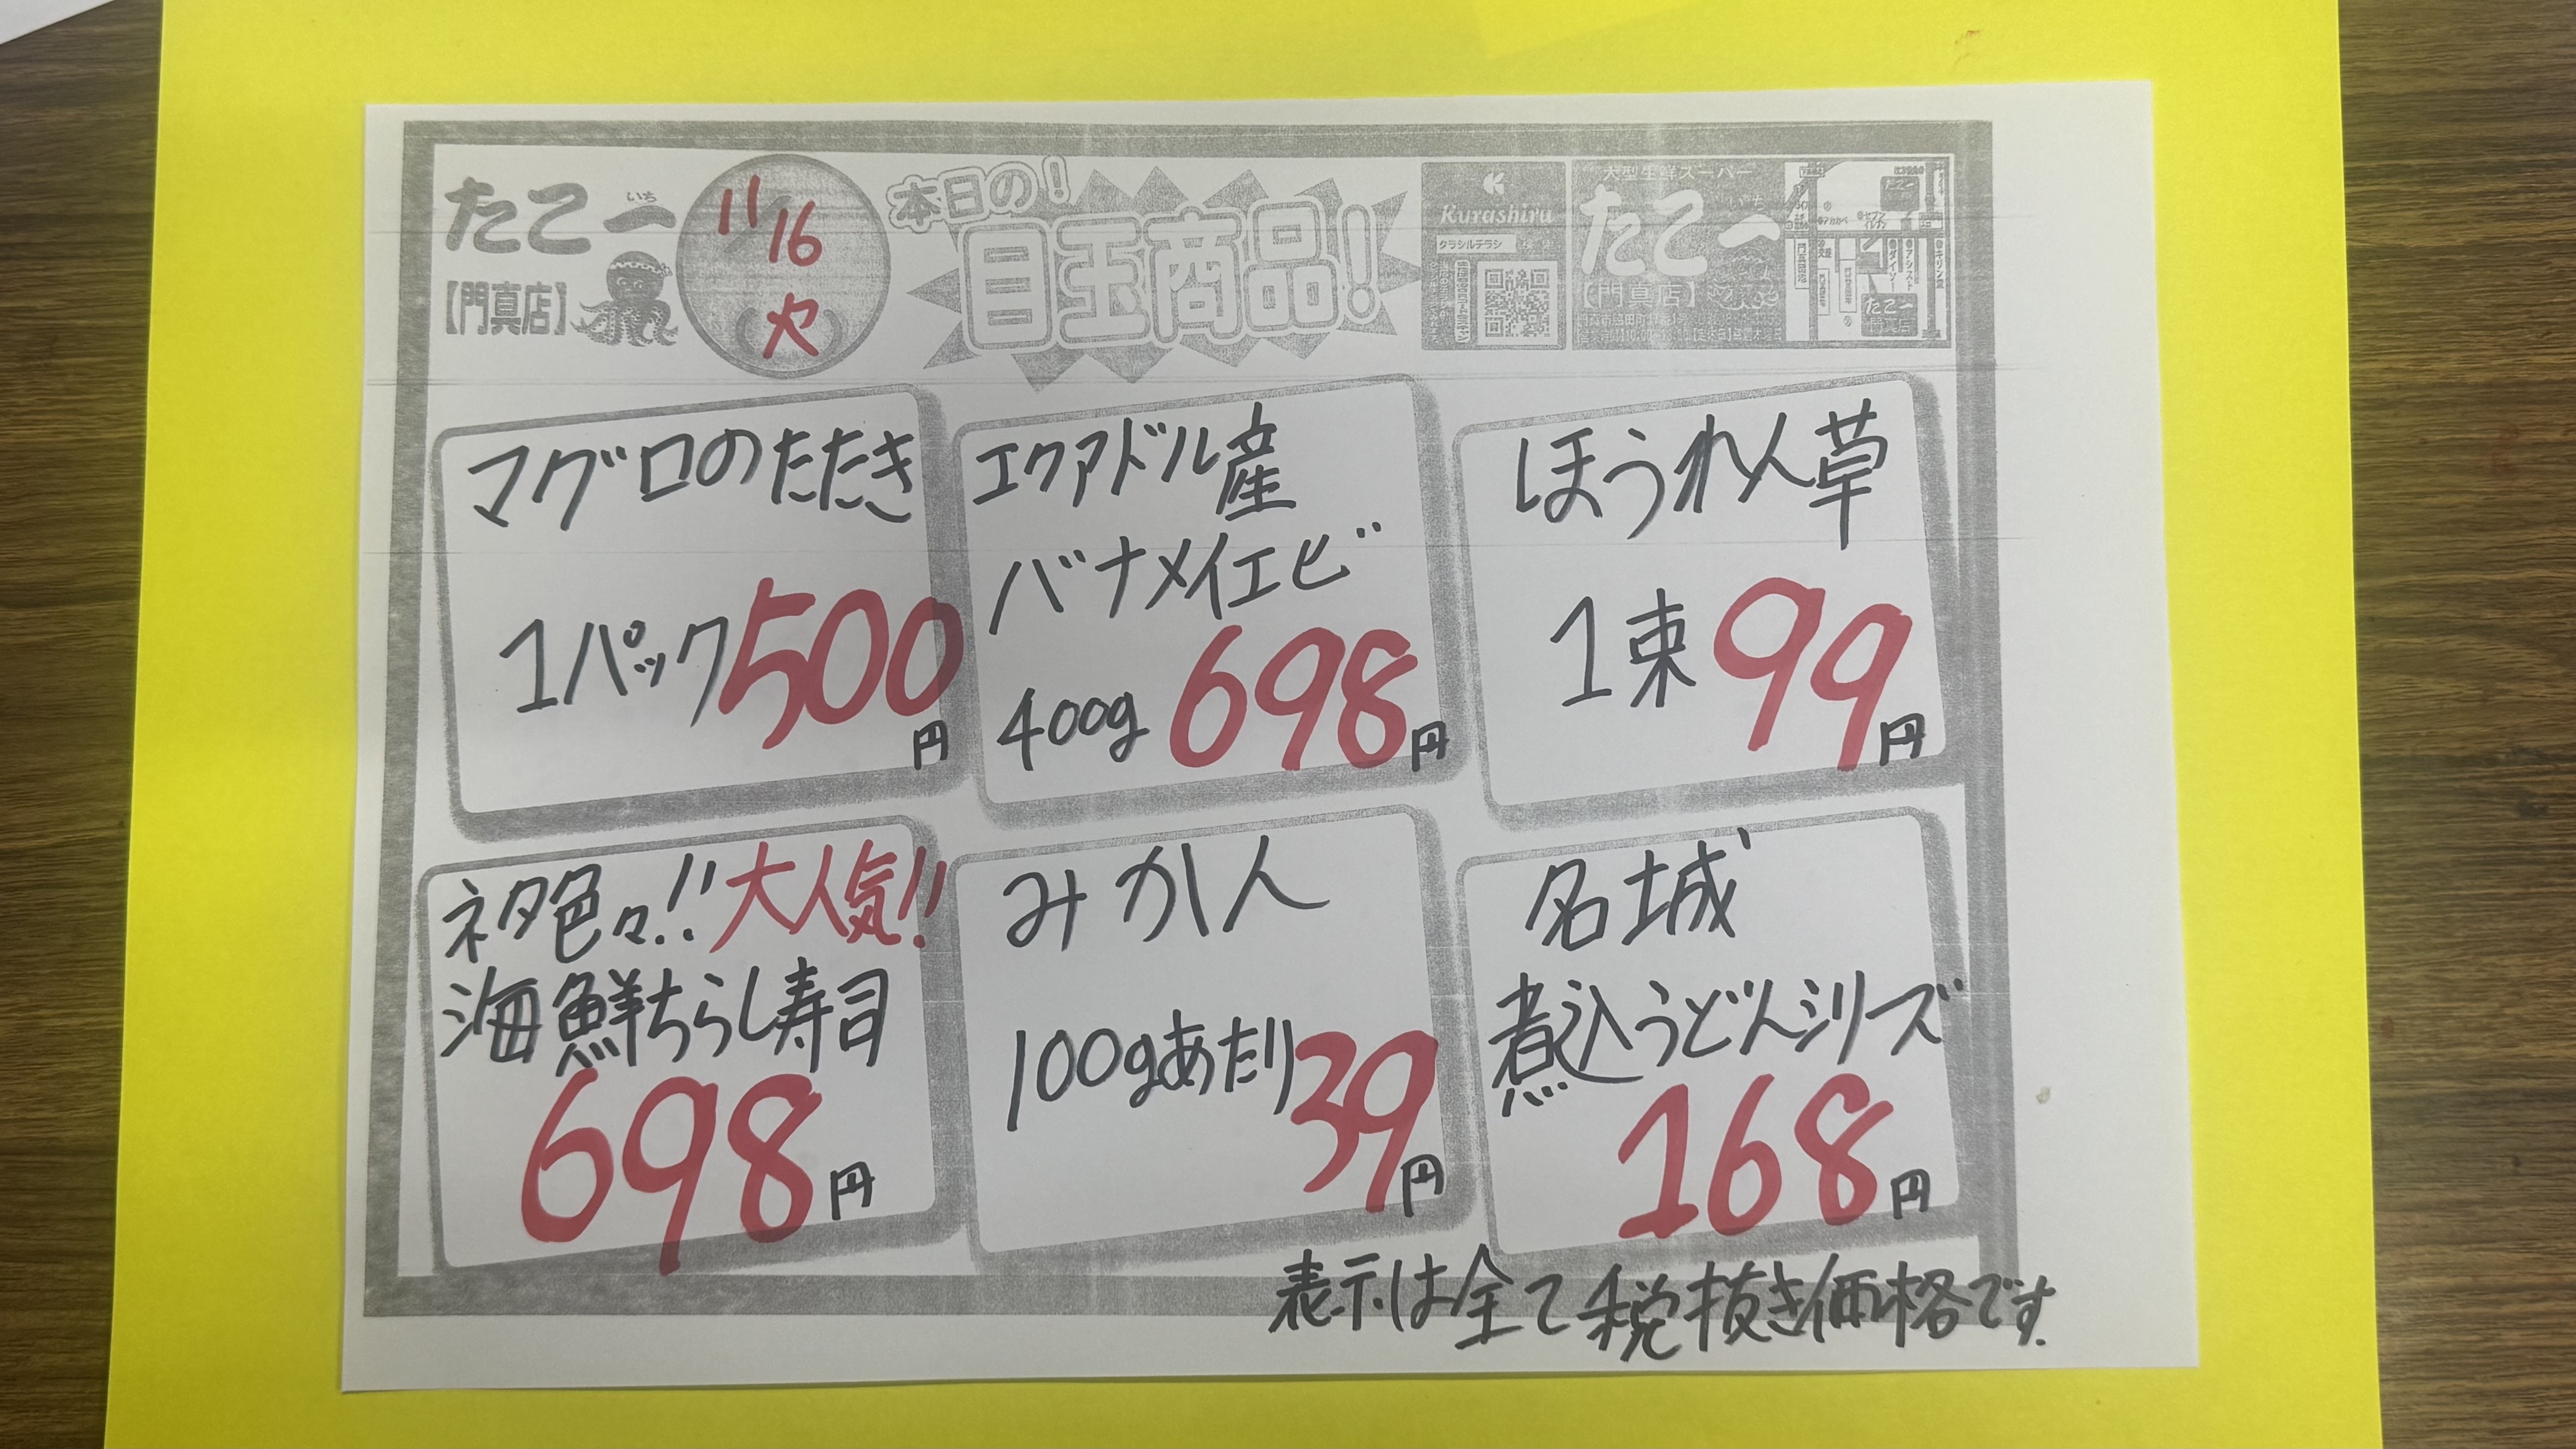 たこ一
いち
【門真店】
11/16
(火)
本日の！
目玉商品！
Kurashiru
クラシルチラシ
大型生鮮スーパー
たこ一
いち
【門真店】
マグロのたたき
1パック500円
エクアドル産
バナメイエビ
400g 698円
ほうれん草
1束 99円
ネタ色々!!大人気!!
海鮮ちらし寿司
698円
みかん
100gあたり39円
名城
煮込うどんシリーズ
168円
表示は全て税抜き価格です.